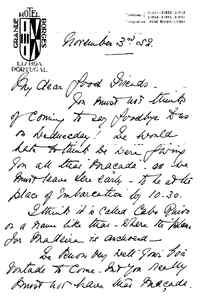 HOTEL
GRANDE
BORGES
LISBOA
PORTUGAL
November 3rd 52.
My dear good Friends.
You must not think
of coming to say Goodbye to us
on Wednesday! We would
hate to think we were giving
you all that - so we
must leave here early - to be at the
place of Embarcation by 10-30.
I think it is called Cabo Ruivo
or a name like that - where the
for Madeira is anchored -
We know very well you
to come. But you really
must not have that